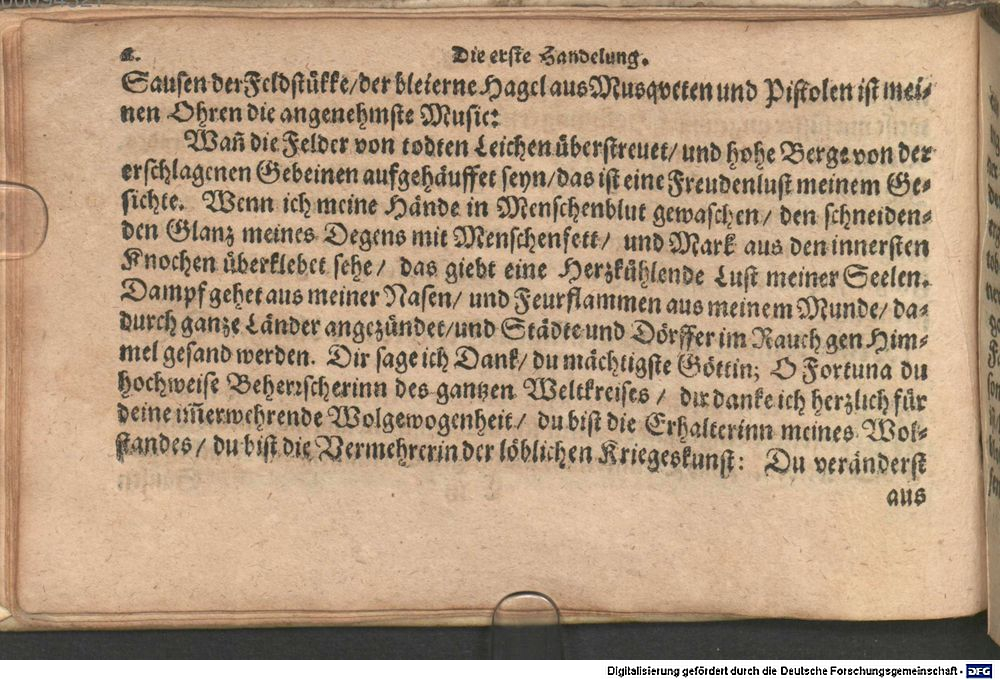 Die erste Handelung.
Sausen der Feldstükke/der bleierne Hagel aus Musqveten und Pistolen ist mei⸗
nen Ohren die angenehmste Music:
Wañ die Felder von todten Leichen überstreuet/ und hohe Berge von der
erschlagenen Gebeinen aufgehäuffet seyn/das ist eine Freudenlust meinem Ge⸗
sichte. Wenn ich meine Hände in Menschenblut gewaschen/ den schneiden⸗
den Glanz meines Degens mit Menschenfett/ und Mark aus den innersten
Knochen überklebet sehe/ das giebt eine Herzkühlende Lust meiner Seelen.
Dampf gehet aus meiner Nasen/ und Feurflammen aus meinem Munde/ da⸗
durch ganze Länder angezündet/und Städte und Dörffer im Rauch gen Him⸗
mel gesand werden. Dir sage ich Dank/ du mächtigste Göttin; O Fortuna du
hochweise Beherzscherinn des gantzen Weltkreises / dir danke ich herzlich für
deine im̃erwehrende Wolgewogenheit/ du bist die Erhalterinn meines Wol⸗
standes/ du bist die Vermehrerin der löblichen Kriegeskunst: Du veränderst
aus
Digitalisierung gefördert durch die Deutsche Forschungsgemeinschaft - DFG